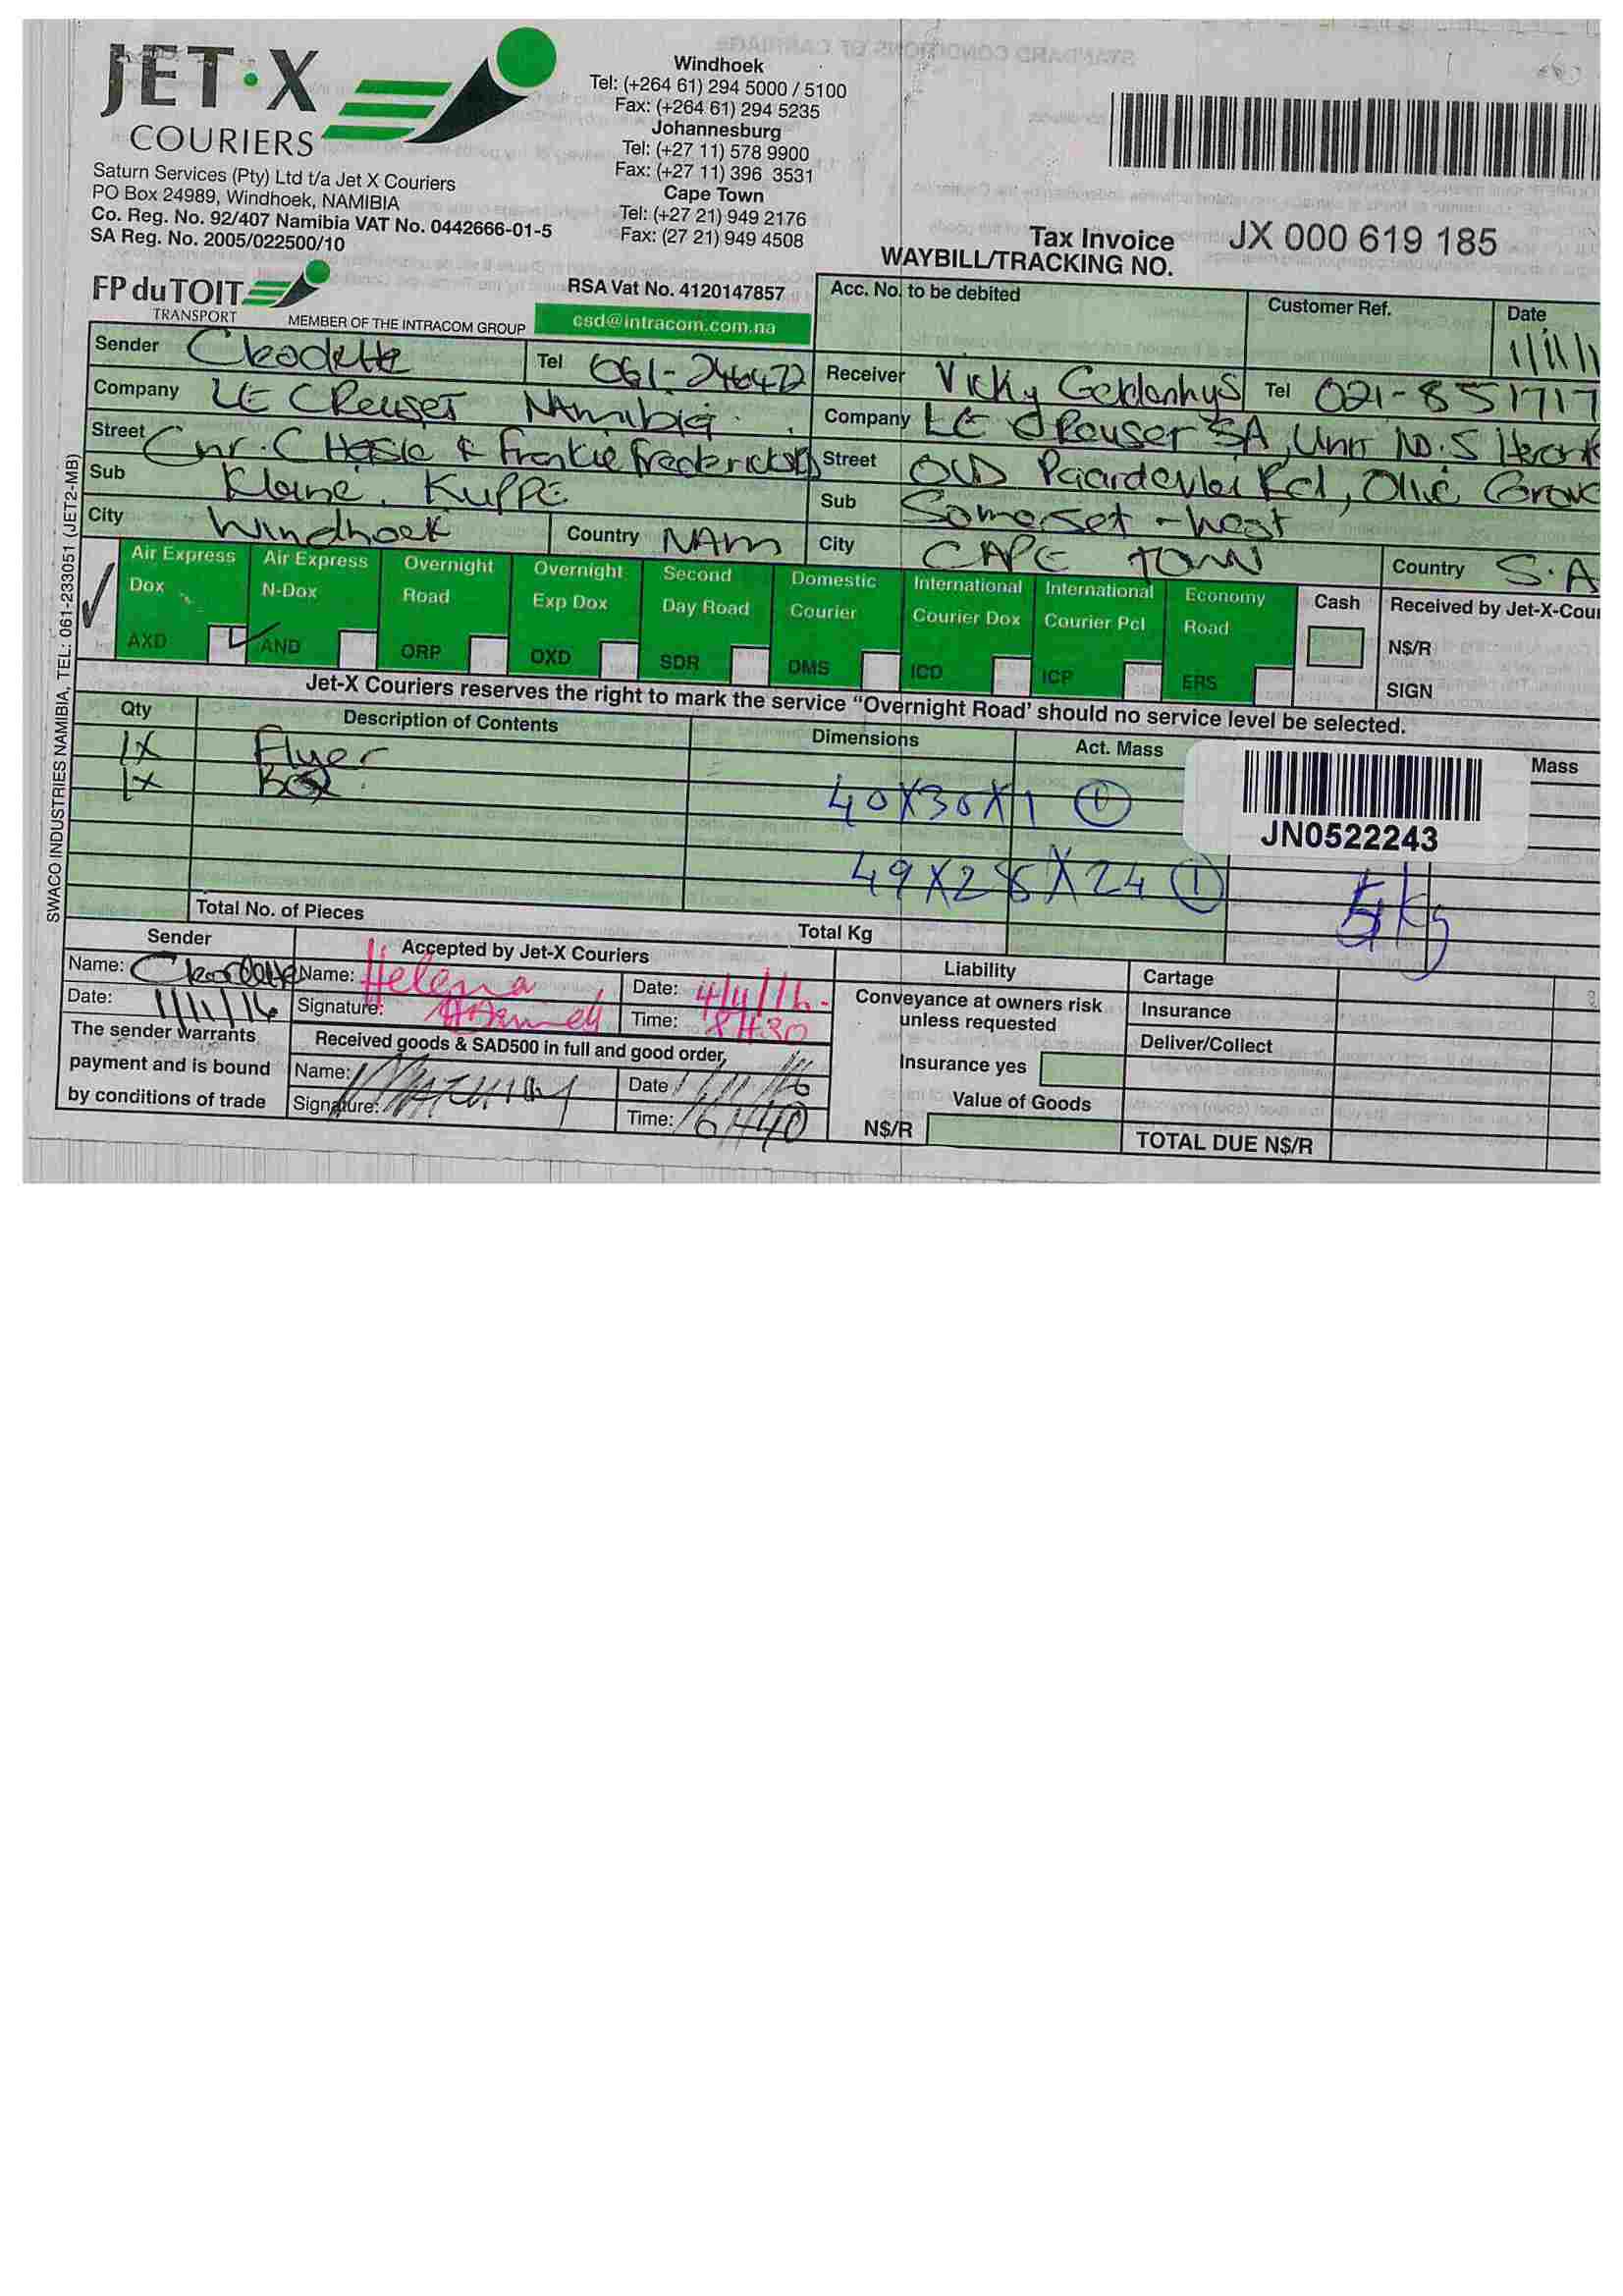 JET·X
COURIERS
Saturn Services (Pty) Ltd t/a Jet X Couriers
PO Box 24989, Windhoek, NAMIBIA
Co. Reg. No. 92/407 Namibia VAT No. 0442666-01-5
SA Reg. No. 2005/022500/10
FP du TOIT
TRANSPORT
MEMBER OF THE INTRACOM GROUP
Windhoek
Tel: (+264 61) 294 5000 / 5100
Fax: (+264 61) 294 5235
Johannesburg
Tel: (+27 11) 578 9900
Fax: (+27 11) 396 3531
Cape Town
Tel: (+27 21) 949 2176
Fax: (27 21) 949 4508
RSA Vat No. 4120147857
csd@intracom.com.na
Tax Invoice
WAYBILL/TRACKING NO.
JX 000 619 185
Acc. No. to be debited
Customer Ref.
Date
1/11/1
Sender Cleodette Tel 061-246472
Company LE CReuset Namibia
Street Cnr. C Hasle & Frankie Fredericks
Sub Klaine Kuppe
City Windhoek Country NAM
Receiver Vicky Geldenhys Tel 021-851717
Company LE CReuser SA, Unit No. 5
Street OLD Paardevlei Rd, Olive Grove
Sub Somerset - West
City CAPE TOWN Country S.A
Air Express Dox AXD
Air Express N-Dox AND
Overnight Road ORP
Overnight Exp Dox OXD
Second Day Road SDR
Domestic Courier DMS
International Courier Dox ICD
International Courier Pcl ICP
Economy Road ERS
Cash
Received by Jet-X-Cou
N$/R
SIGN
Jet-X Couriers reserves the right to mark the service "Overnight Road' should no service level be selected.
Qty Description of Contents Dimensions Act. Mass Mass
1X Flyer
1x Box
40X30X1 1
49X28X24 1
JN0522243
5kg
Total No. of Pieces
Total Kg
Sender
Name: Cleodette
Date: 1/11/16
The sender warrants
payment and is bound
by conditions of trade
Accepted by Jet-X Couriers
Name: Helena Date: 4/4/16
Signature: Time: 8H30
Received goods & SAD500 in full and good order,
Name: Date 1/11/16
Signature: Time: 16H40
Liability
Conveyance at owners risk
unless requested
Insurance yes
Value of Goods
N$/R
Cartage
Insurance
Deliver/Collect
TOTAL DUE N$/R
SWACO INDUSTRIES NAMIBIA, TEL: 061-233051 (JET2-MB)